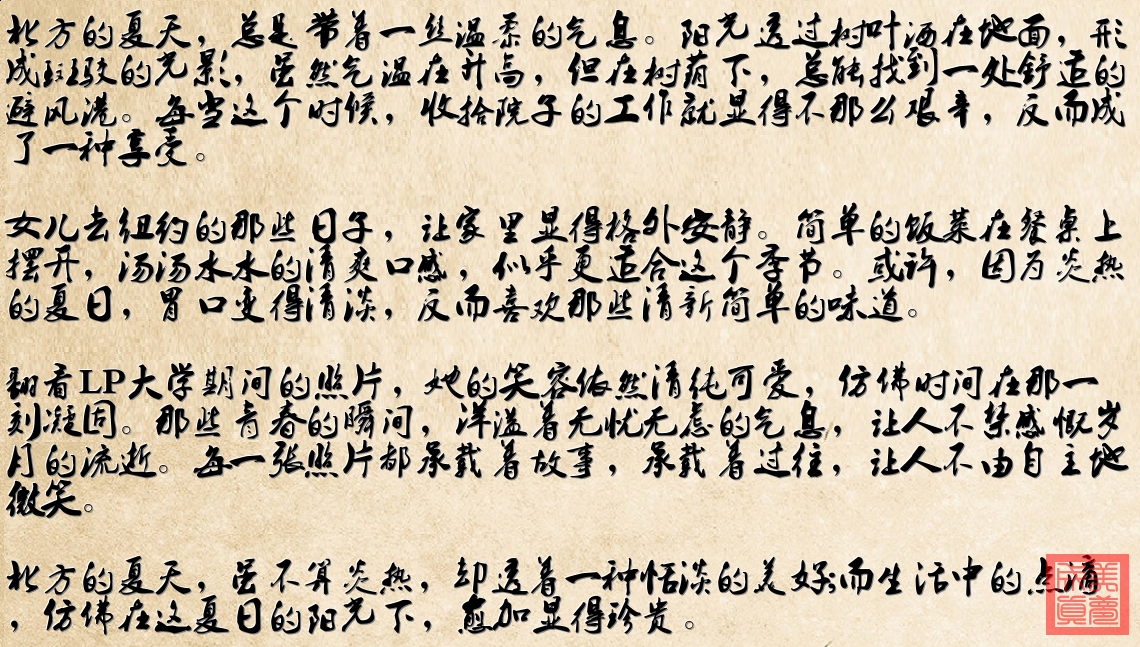 北方的夏天，总是带着一丝温柔的气息。阳光透过树叶洒在地面，形
成斑驳的光影，虽然气温在升高，但在树荫下，总能找到一处舒适的
避风港。每当这个时候，收拾院子的工作就显得不那么艰辛，反而成
了一种享受。
女儿去纽约的那些日子，让家里显得格外安静。简单的饭菜在餐桌上
摆开，汤汤水水的清爽口感，似乎更适合这个季节。或许，因为炎热
的夏日，胃口变得清淡，反而喜欢那些清新简单的味道。
翻看LP大学期间的照片，她的笑容依然清纯可爱，仿佛时间在那一
刻凝固。那些青春的瞬间，洋溢着无忧无虑的气息，让人不禁感慨岁
月的流逝。每一张照片都承载着故事，承载着过往，让人不由自主地
微笑。
北方的夏天，虽不算炎热，却透着一种恬淡的美好；而生活中的点滴
，仿佛在这夏日的阳光下，愈加显得珍贵。